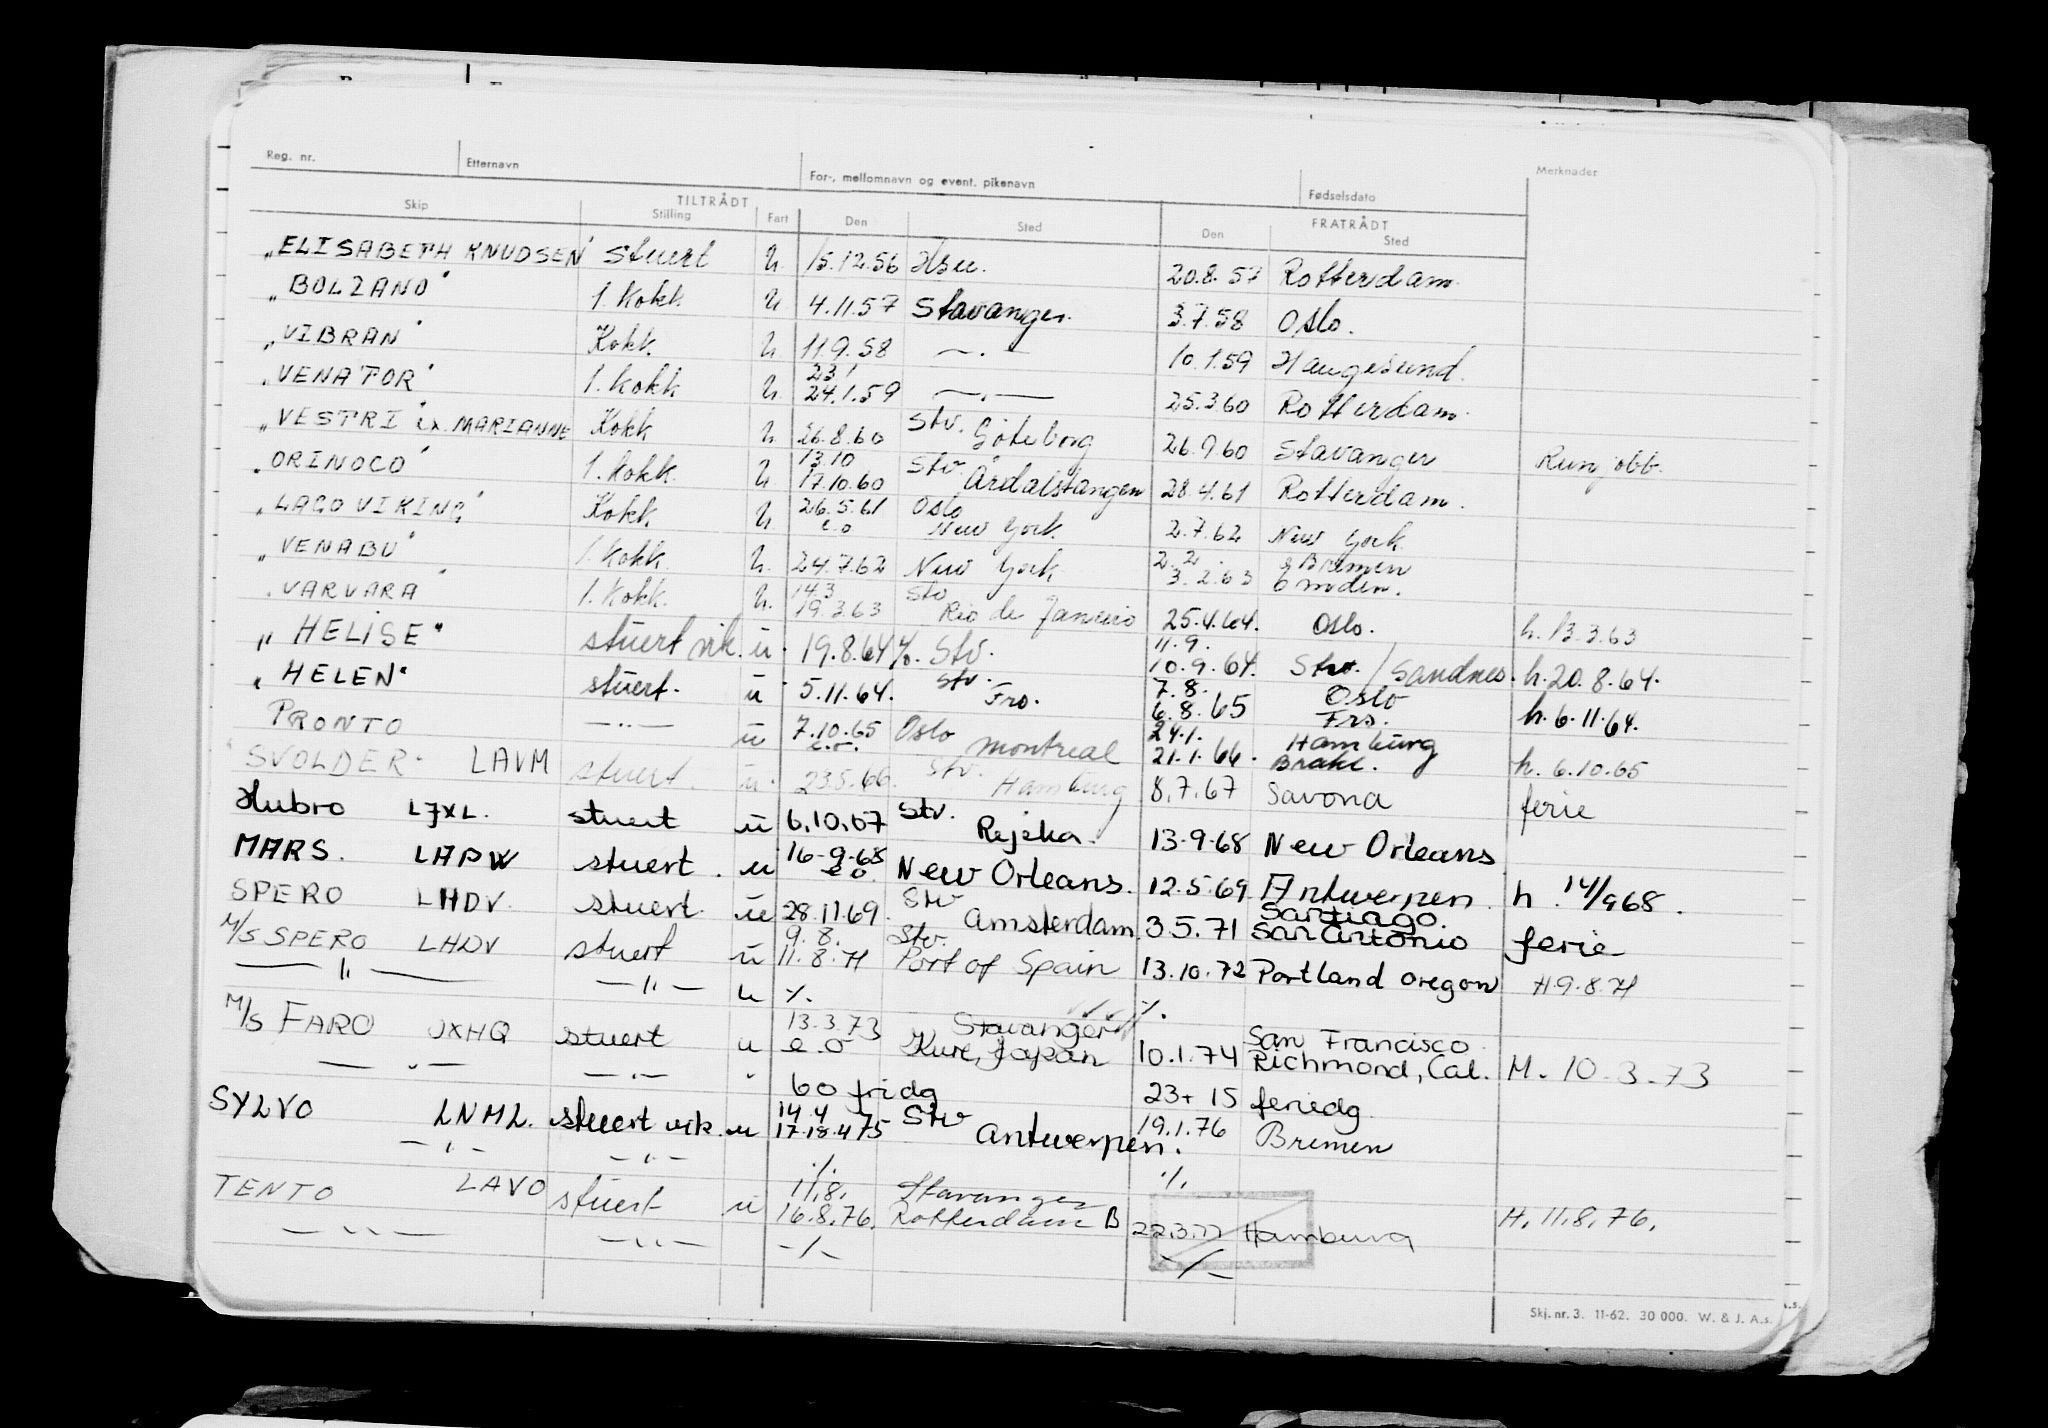 Reg. nr. Etternavn For-, mellomnavn og event. pikenavn Fødselsdato Merknader
TILTRÅDT FRATRÅDT
Skip Stilling Fart Den Sted Den Sted
"ELISABETH KNUDSEN" Stuert u. 15.12.56 Hsu. 20.8.57 Rotterdam.
"BOLZANO" 1. Kokk u 4.11.57 Stavanger. 3.7.58 Oslo.
"VIBRAN" Kokk. u 11.9.58 —.— 10.1.59 Haugesund.
23/
"VENATOR" 1. kokk u. 24.1.59 —.— 25.3.60 Rotterdam.
"VESTRI" ex. MARIANNE Kokk u 26.8.60 Stv. Göteborg 26.9.60 Stavanger Run jobb.
13.10 Stv.
"ORINOCO" 1. kokk. u 17.10.60 Årdalstangen 28.4.61 Rotterdam.
26.5.61 Oslo
"LAGO VIKING" Kokk u e.o New York. 2.7.62 New York.
2.2. Bremen
"VENABU" 1. kokk. u. 24.7.62 New York 3.2.63 Emden.
14.3 Stv
"VARVARA" 1. kokk. u. 19.3.63 Rio de Janeiro 25.4.64. Oslo. h. 13.3.63
11.9.
"HELISE" stuert vik. u. 19.8.64 %. Stv. 10.9.64. Stv. / Sandnes. h. 20.8.64.
Stv. 7.8. Oslo
"HELEN" stuert. u 5.11.64. Fro. 6.8.65 Frs. h. 6.11.64.
24.1. Hamburg
PRONTO —"— u 7.10.65 e.o. Oslo Montreal 21.1.66. Brake. h. 6.10.65
"SVOLDER" LAVM stuert. u. 23.5.66. Stv. Hamburg 8.7.67 Savona ferie
Hubro LJXL. stuert u 6.10.67 Stv. Rejeka. 13-9-68 New Orleans
MARS. LAPW stuert. u 16-9-68 e.o. New Orleans. 12.5.69 Antwerpen. h. 14/9 68.
Stv Santiago.
SPERO LHDV. stuert. u 28.11.69. Amsterdam. 3.5.71 San Antonio ferie
9.8. Stv.
M/S SPERO LHDV stuert u 11.8.71 Port of Spain 13.10.72 Portland Oregon H 9.8.71
—"— —"— u %. %.
13.3.73 Stavanger San Francisco
M/S FARO JXHQ stuert u e.o Kure, Japan 10.1.74 Richmond, Cal. M. 10.3.73
—"— —"— " 60 fridg 23 + 15 feriedg.
14.4 Stv
SYLVO LNML. stuert vik. u 17.18.4 75 Antwerpen. 19.1.76 Bremen
—"— —"— ./. ./.
11.8. Stavanger
TENTO LAVO stuert u 16.8.76. Rotterdam B 22.3.77 Hamburg H. 11.8.76.
—"— —"— -/- -/-
Skj. nr. 3. 11-62. 30 000. W. & J. A.s.